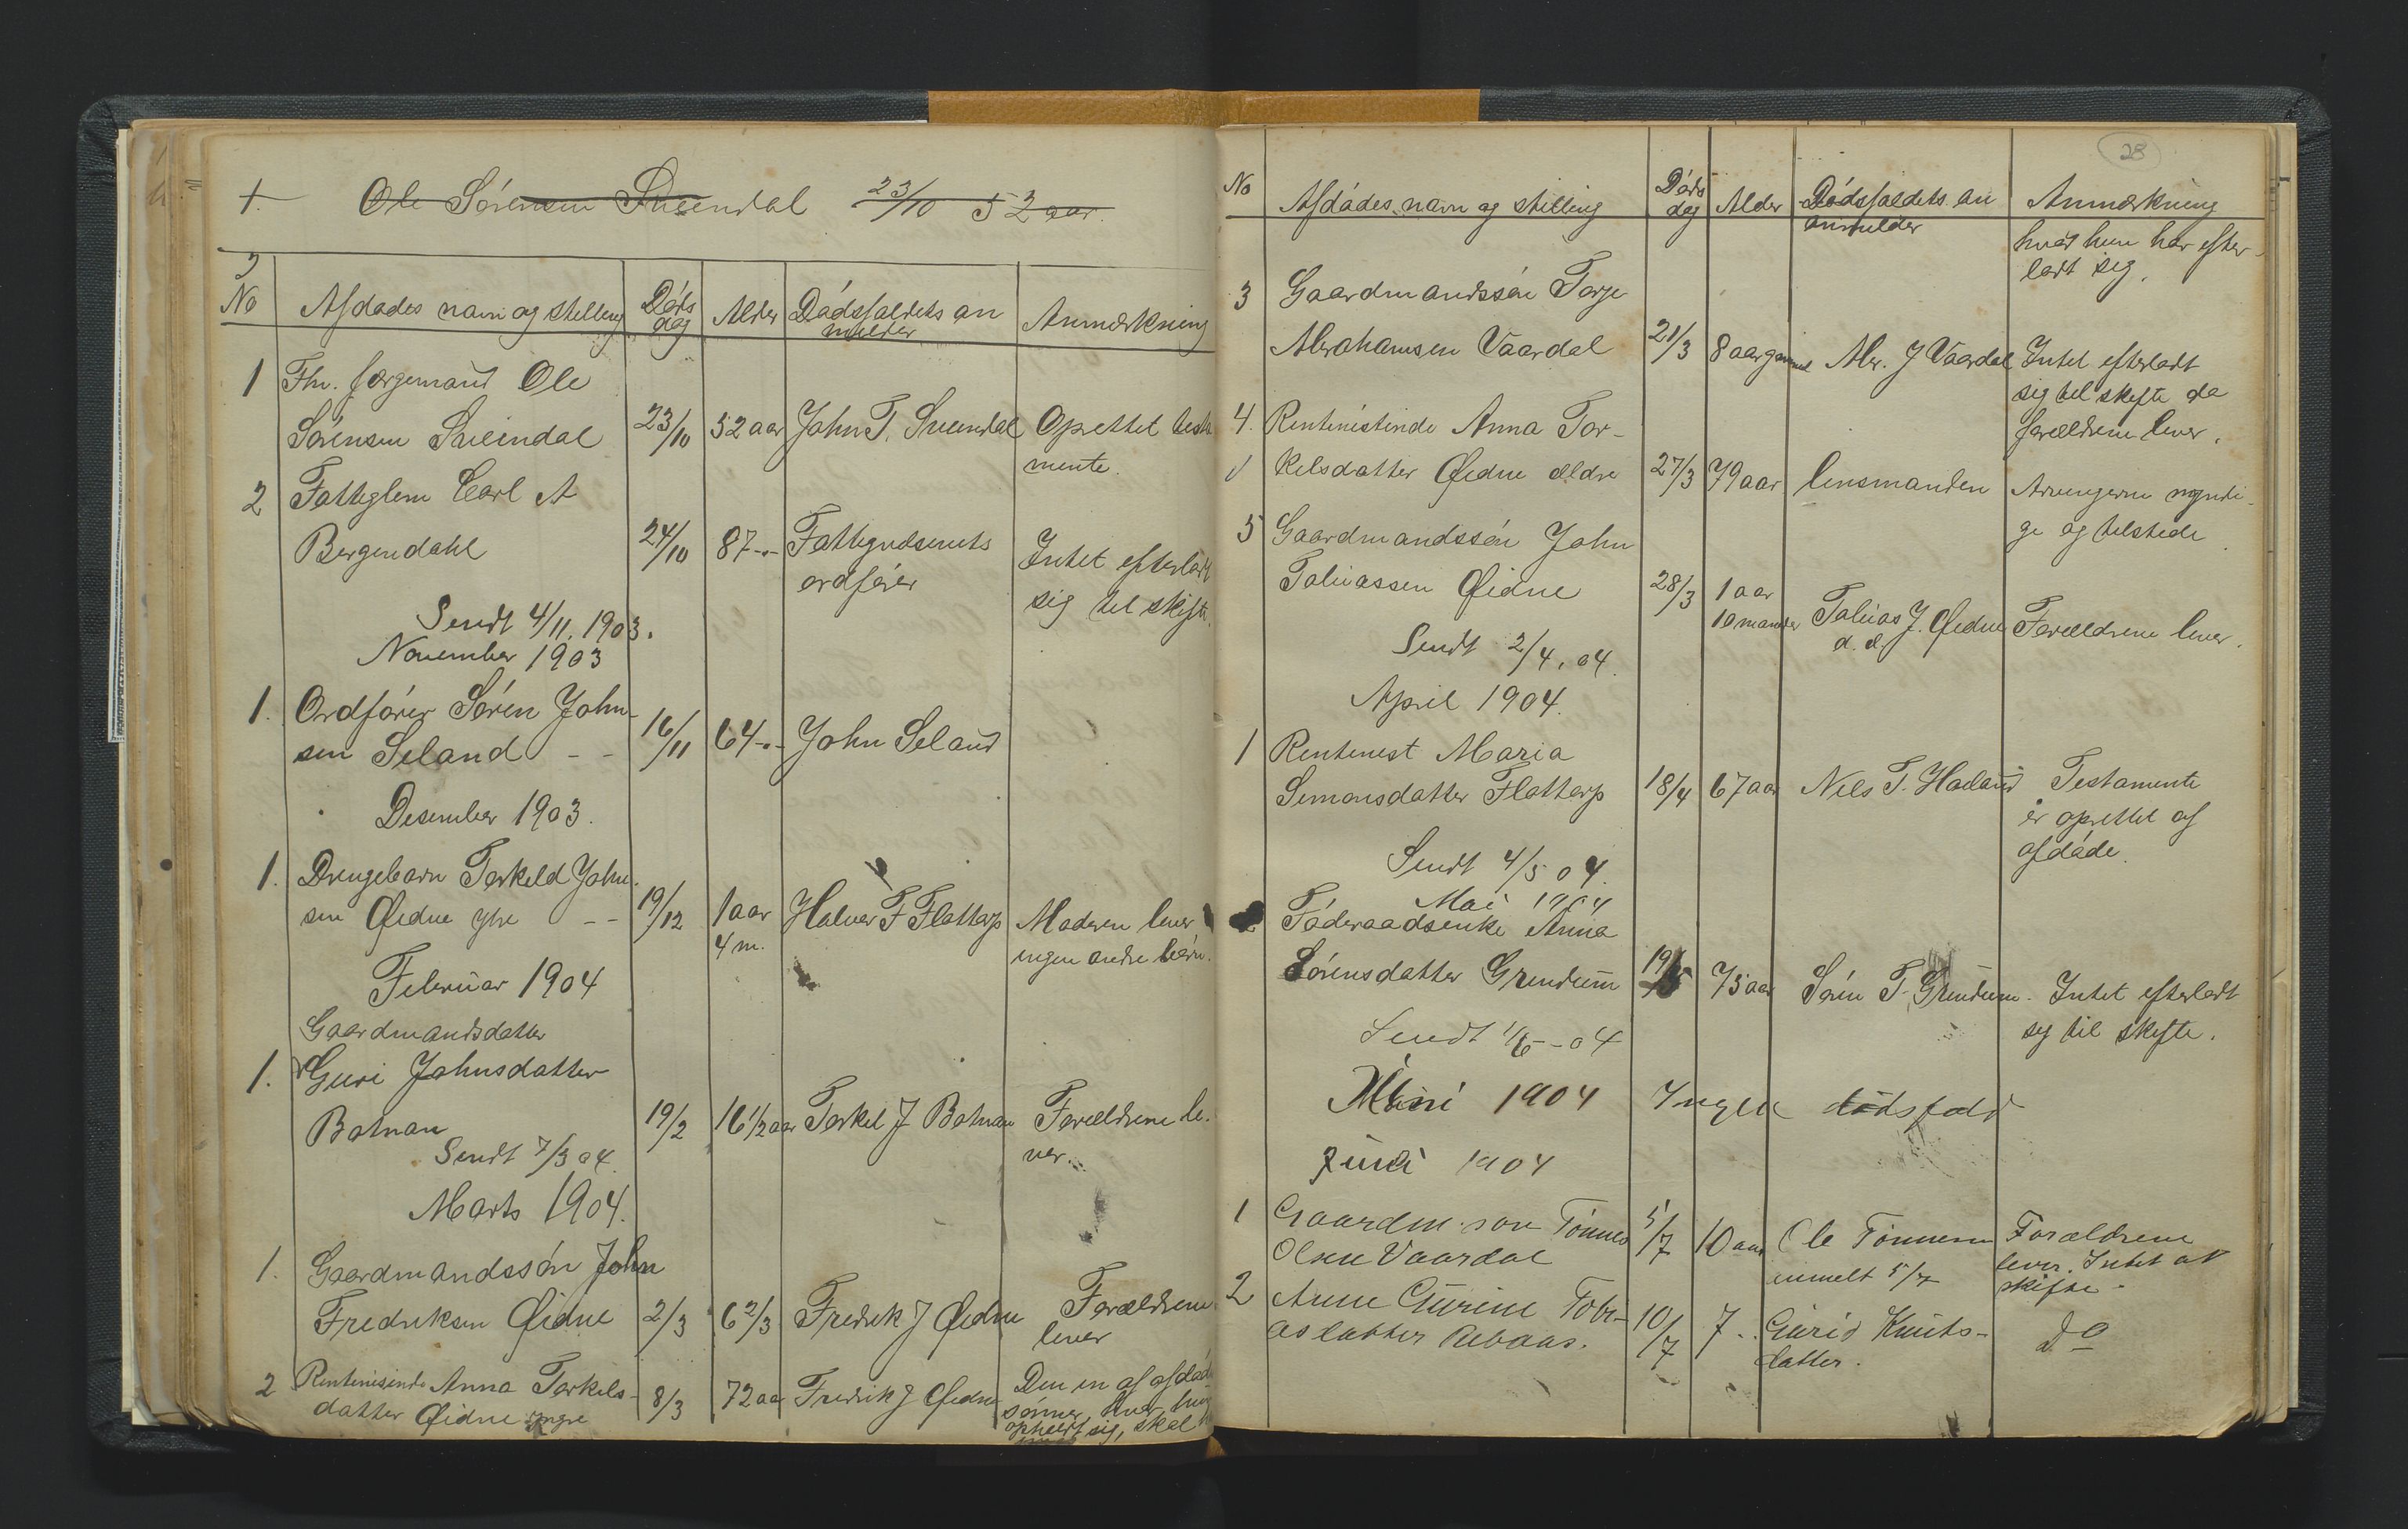 1. Ole Sørensen Sveendal 23/10 52 aar.
No Afdødes navn og stilling Døds dag Alder Dødsfaldets an melder Anmærkning
1 Fhv. færgemand Ole
Sørensen Sveindal 23/10 52 aar John T. Sveendal Oprettet testa
mente.
2 Fattiglem Carl A
Bergendahl 24/10 87-"- Fattigvæsenets Intet efterladt
ordfører sig til skifte.
Sendt 4/11. 1903.
November 1903
1. Ordfører Søren John-
sen Seland - - 16/11 64-"- John Seland
Desember 1903.
1. Drengebarn Torkeld John-
sen Øidne ytre - - 19/12 1 aar Halvor F Flottorp Moderen lever
4 m. ingen andre børn.
Februar 1904
Gaardmandsdatter
1. Guri Johnsdatter
Botnan 19/2 16 1/2 aar Torkel J Botnan Forældrene le-
Sendt 7/3 04. ver.
Marts 1904.
1. Gaardmandssøn John
Fredriksen Øidne 2/3 6 2/3 Fredrik J Øidne Forældrene
lever
2 Rentenisinde Anna Torkels-
datter Øidne yngre 8/3 72 aar Fredrik J Øidne Den en af afdød
sønner, hvor hun
opholdt sig, skal
28
No Afdødes navn og stilling Døds dag Alder Dødsfaldets an anmelder Anmærkning
hvad hun har efter-
ladt sig.
3 Gaardmandssøn Torje
Abrahamsen Vaardal 21/3 8 aar gammel Abr. J Vaardal Intet efterladt
sig til skifte da
forældrene lever.
4. Rentenistinde Anna Tor-
kelsdatter Øidne ældre 27/3 79 aar lensmanden Arvingerne myndi-
ge og tilstede
5 Gaardmandssøn John
Tobiassen Øidne 28/3 1 aar
10 maaneder Tobias J. Øidne Forældrene lever.
d. æ.
Sendt 2/4. 04.
April 1904.
1 Rentenist Maria
Simonsdatter Flottorp 18/4 67 aar Nils T. Haaland Testamente
er oprettet af
afdøde.
Sendt 4/5 04.
Mai 1904
Føderaadsenke Anna
Sørensdatter Grundum 19/5 75 aar Søren T. Grundum. Intet efterladt
sig til skifte.
Sendt 1/6 - 04
Juni 1904 Ingen dødsfald
Juli 1904
1 Gaardm. søn Tønnes 5/7 10 aar Ole Tønnesen Forældrene
Olsen Vaardal anmelt 5/7 lever. Intet at
skifte.
2 Anne Gurine Tobi- 10/7 7 -"- Gurid Knuts- do
asdatter Aabaas. datter.